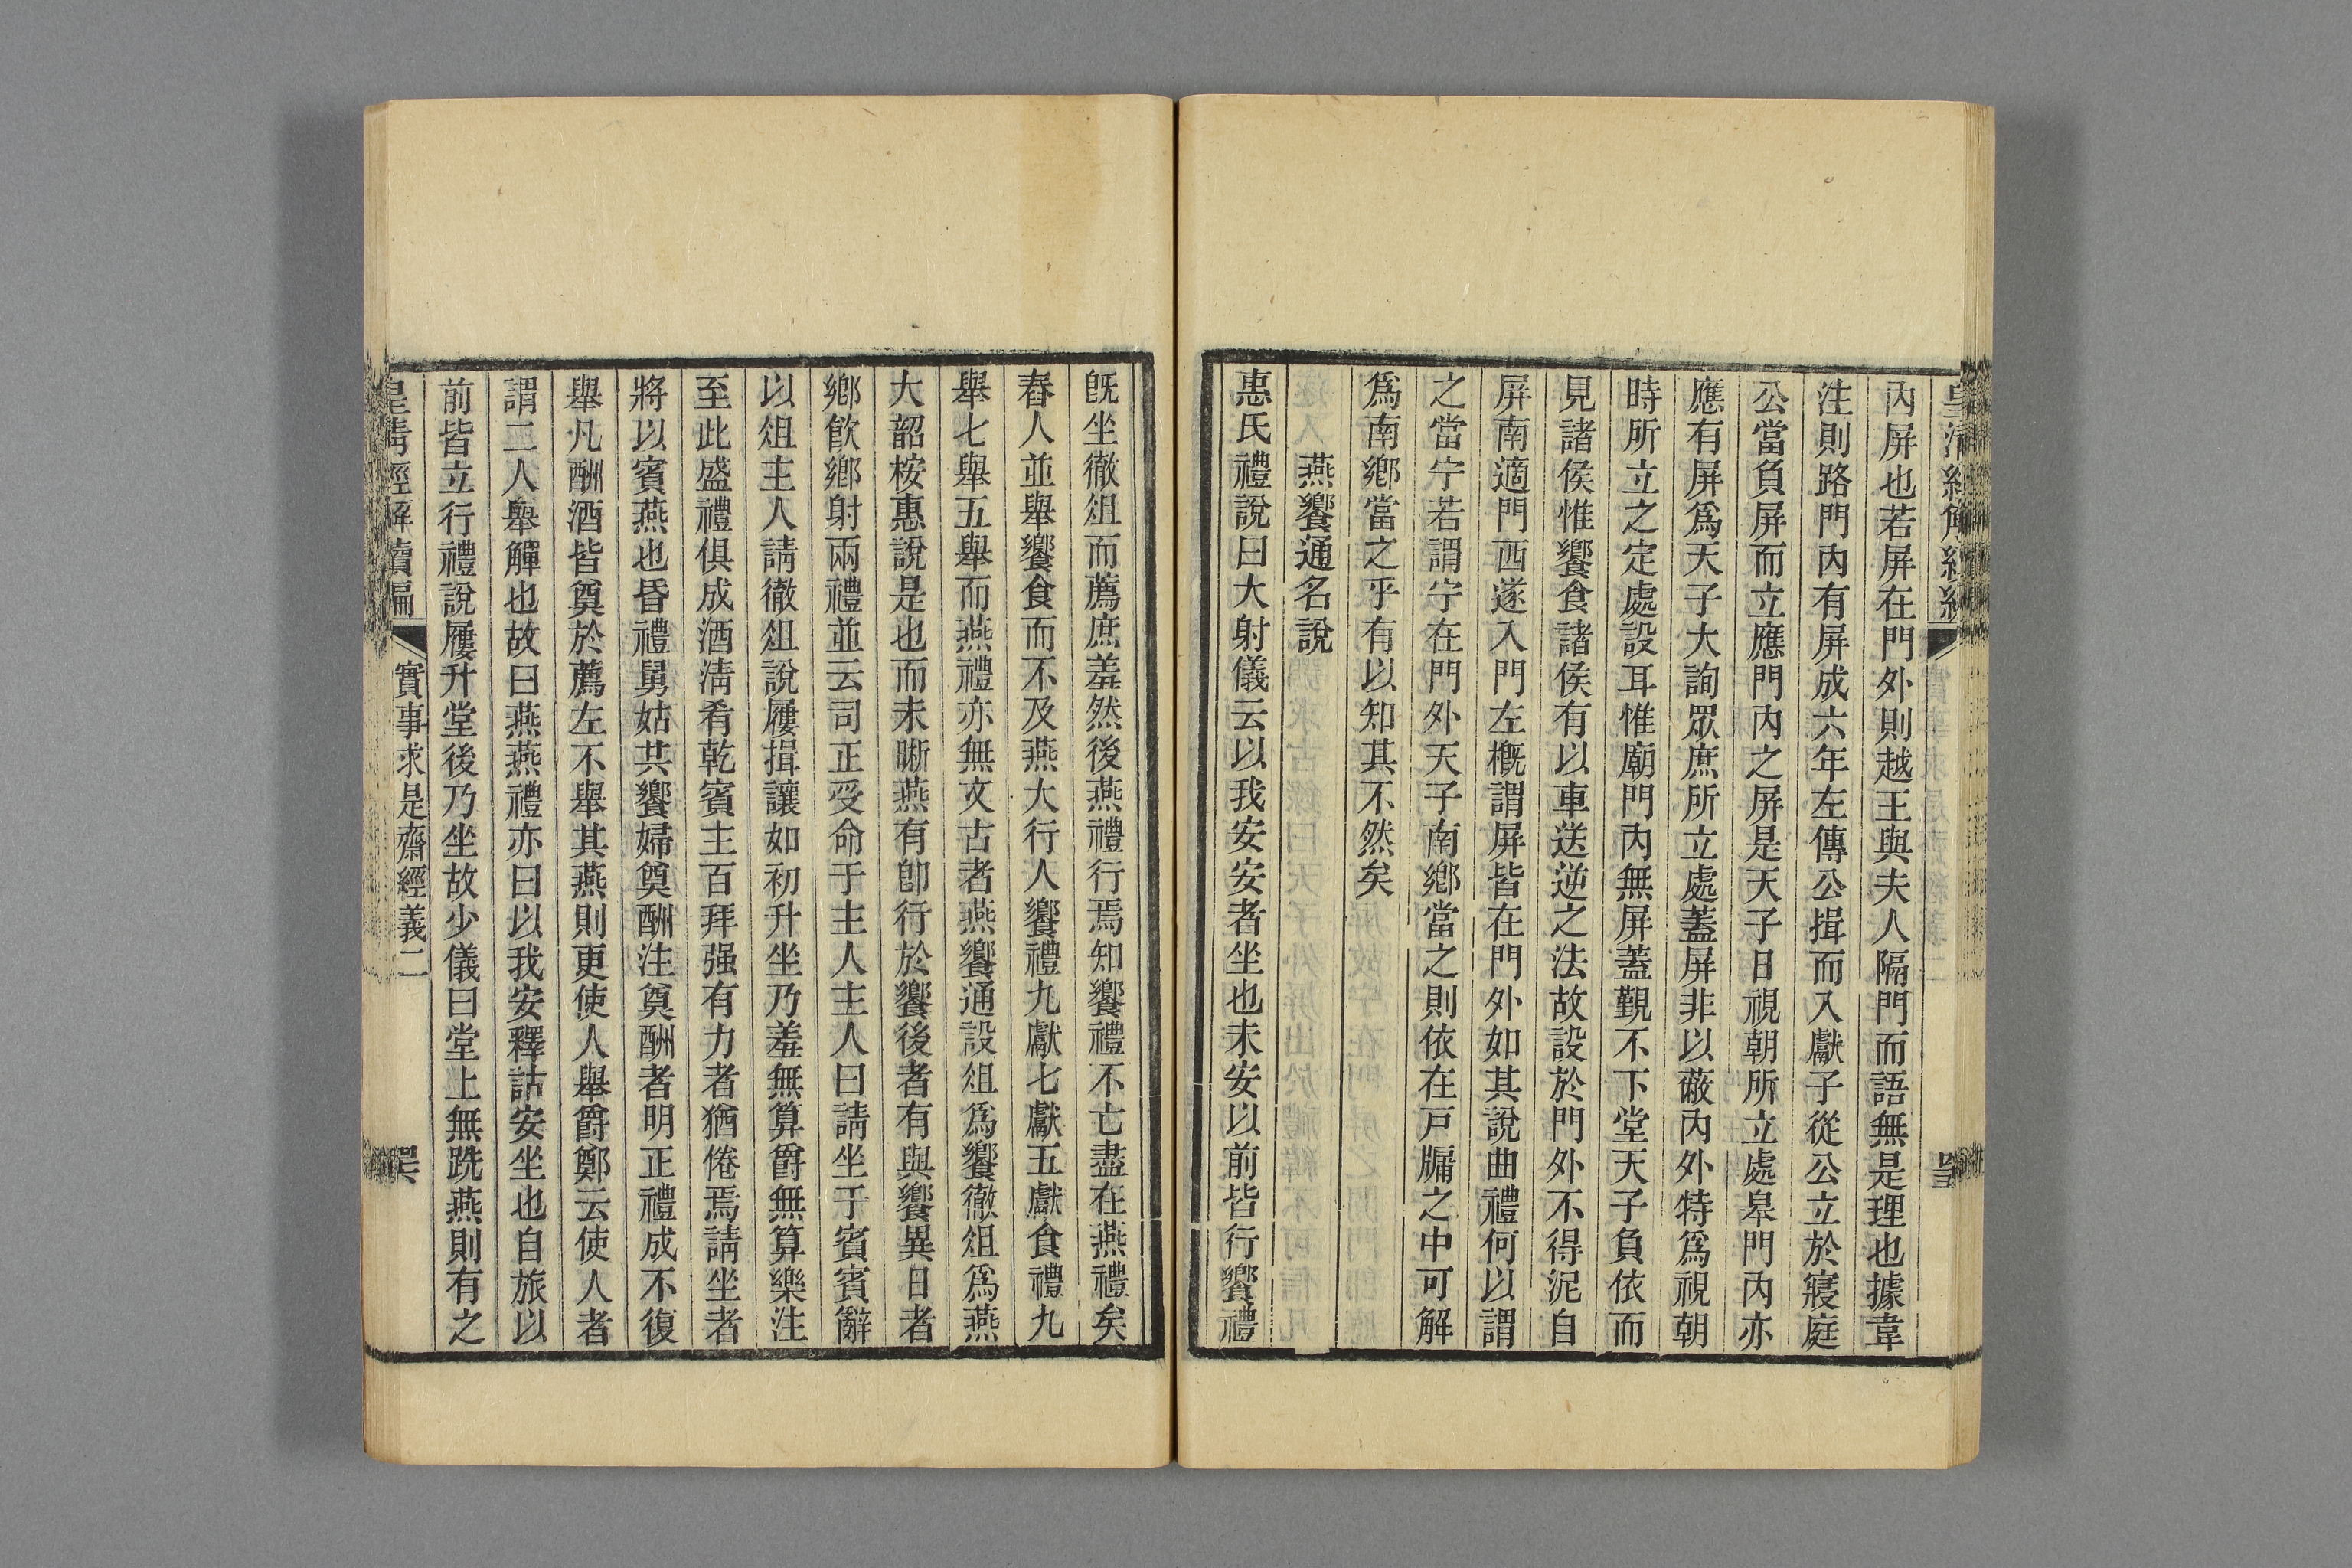 內屏也若屏在門外則越王與夫人隔門而語無是理也據韋
注則路門內有屏成六年左傳公揖而入獻子從公立於寢庭
公當負屏而立應門內之屏是天子日視朝所立處皋門內亦
應有屏爲天子大詢眾庶所立處蓋屏非以蔽內外特爲視朝
時所立之定處設耳惟廟門內無屏蓋覲不下堂天子負依而
見諸侯惟饗食諸侯有以車送逆之法故設於門外不得泥自
屏南適門西遂入門左槪謂屏皆在門外如其說曲禮何以謂
之當宁若謂宁在門外天子南鄉當之則依在戶牖之中可解
爲南鄉當之乎有以知其不然矣
燕饗通名說
惠氏禮說曰大射儀云以我安安者坐也未安以前皆行饗禮
旣坐徹俎而薦庶羞然後燕禮行焉知饗禮不亡盡在燕禮矣
舂人並舉饗食而不及燕大行人饗禮九獻七獻五獻食禮九
舉七舉五舉而燕禮亦無文古者燕饗通設俎爲饗徹俎爲燕
大韶桉惠說是也而未晣燕有卽行於饗後者有與饗異日者
鄉飮鄉射兩禮並云司正受命于主人主人曰請坐于賓賓辭
以俎主人請徹俎說屨揖讓如初升坐乃羞無算爵無算樂注
至此盛禮俱成酒淸肴乾賓主百拜强有力者猶倦焉請坐者
將以賓燕也昏禮舅姑共饗婦奠酬注奠酬者明正禮成不復
舉凡酬酒皆奠於薦左不舉其燕則更使人舉爵鄭云使人者
謂二人舉觶也故曰燕燕禮亦曰以我安釋詁安坐也自旅以
前皆立行禮說屨升堂後乃坐故少儀曰堂上無跣燕則有之
皇淸經解續編
實事求是齋經義二